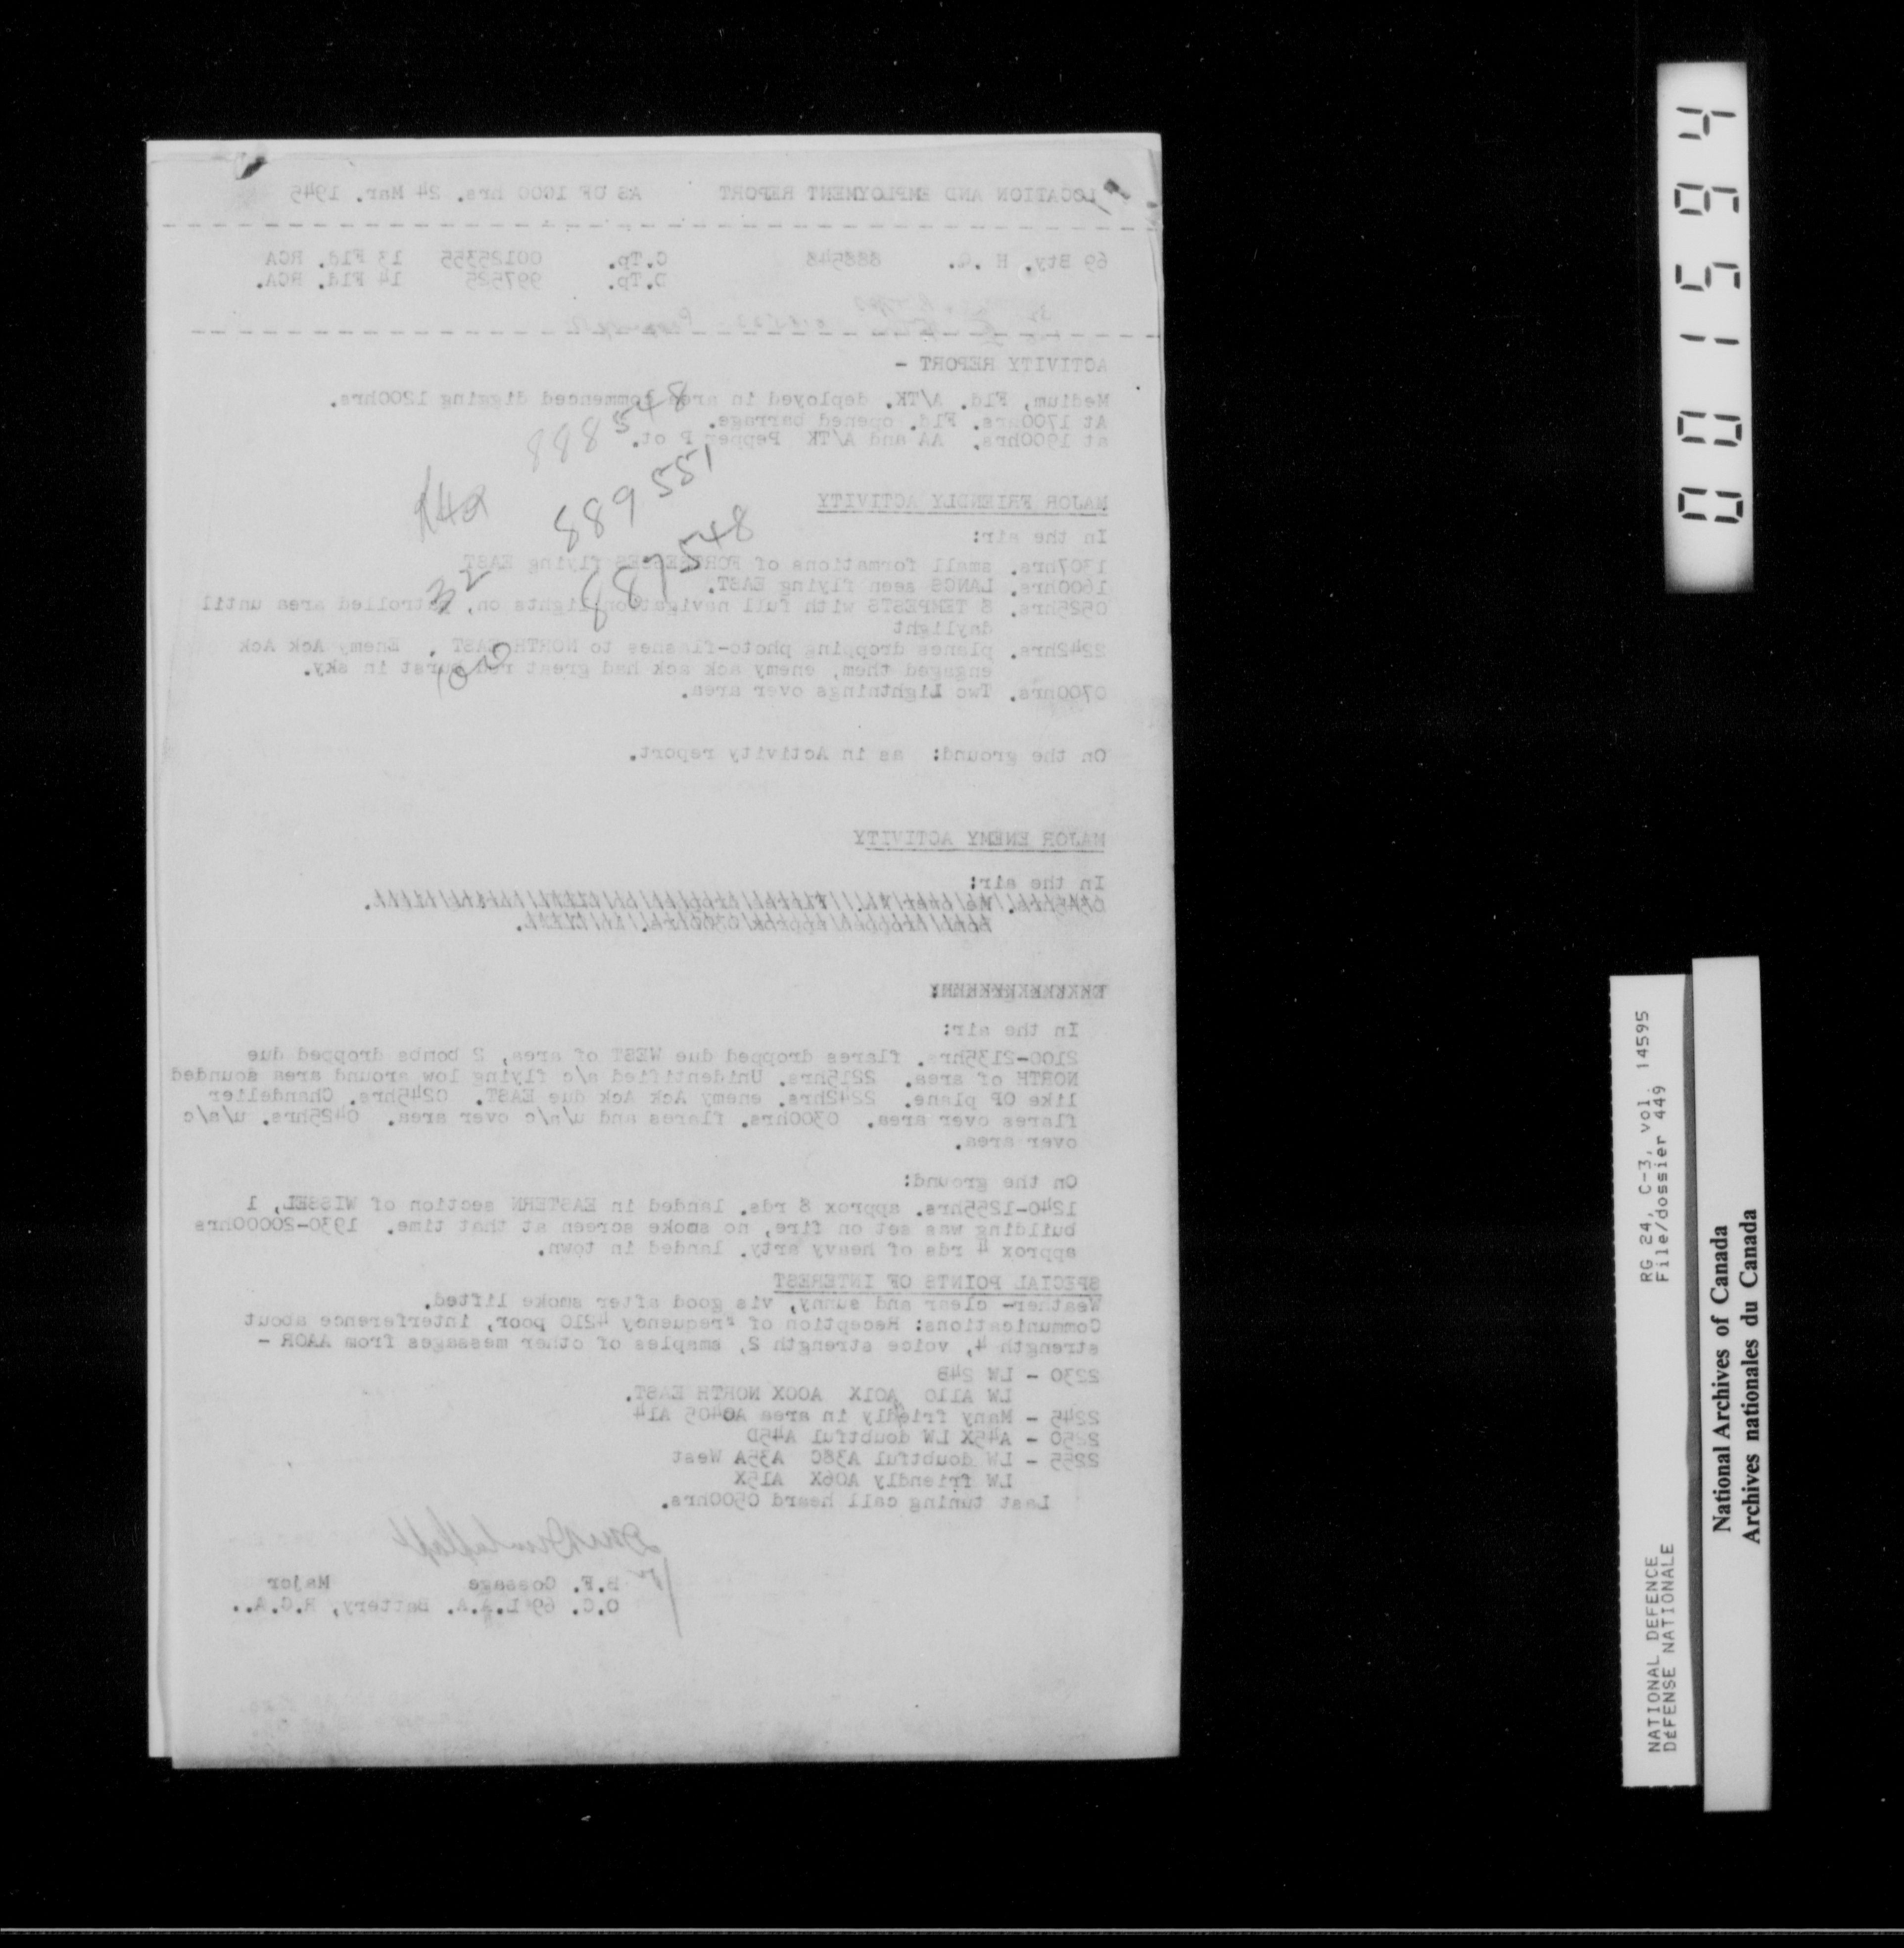 LOCATION AND EMPLOYMENT REPORT AS OF 1000 hrs. 24 Mar. 1945
69 Bty. H .Q. 888548 C.Tp. 00125355 13 Fld. RCA
D.Tp. 997525 14 Fld. RCA.
ACTIVITY REPORT -
Medium, Fld. A/TK. deployed in area commenced digming 1200hrs.
At 1700hrs. Fld. opened barrage.
at 1900hrs. AA and A/TK Pepper P ot.
888548
889551
887548
142
32
100
MAJOR FRIENDLY ACTIVITY
In the air:
1307hrs. small formations of FORTSESSES flying EAST
1600hrs. LANCS seen flying EAST.
0525hrs. 8 TEMPESTS with full navigation lights on, patrolled area until
daylight
2242hrs. planes dropping photo-flashes to NORTH EAST . Enemy Ack Ack
engaged them, enemy ack ack had great red burst in sky.
0700hrs. Two Lightnings over area.
On the ground: as in Activity report.
MAJOR ENEMY ACTIVITY
In the air:
In the air:
2100-2135hrs. flares dropped due WEST of area, 2 bombs dropped due
NORTH of area. 2215hrs. Unidentified a/c flying low around area sounded
like OP plane. 2242hrs. enemy Ack Ack due EAST. 0245hrs. Chandelier
flares over area. 0300hrs. flares and u/a/c over area. 0425hrs. u/a/c
over area.
On the ground:
1240-1255hrs. approx 8 rds. landed in EASTERN section of WISSEL, 1
building was set on fire, no smoke screen at that time. 1930-20000hrs
approx 4 rds of heavy arty. landed in town.
SPECIAL POINTS OF INTEREST
Weather- clear and sunny, vis good after smoke lifted.
Communications: Reception of frequency 4210 poor, interference about
strength 4, voice strength 2, smaples of other messages from AAOR -
2230 - LW 24B
LW A110 A01X A00X NORTH EAST.
2245 - Many friendly in area A0405 A14
2250 - A45X LW doubtful A45D
2255 - LW doubtful A38C A35A West
LW friendly A06X A15X
Last tuning call heard 0500hrs.
B.F. Gossage Major
O.C. 69 L.A.A. Battery, R.C.A..
001594
RG 24, C-3, vol. 14595
File/dossier 449
NATIONAL DEFENCE
DÉFENSE NATIONALE
National Archives of Canada
Archives nationales du Canada